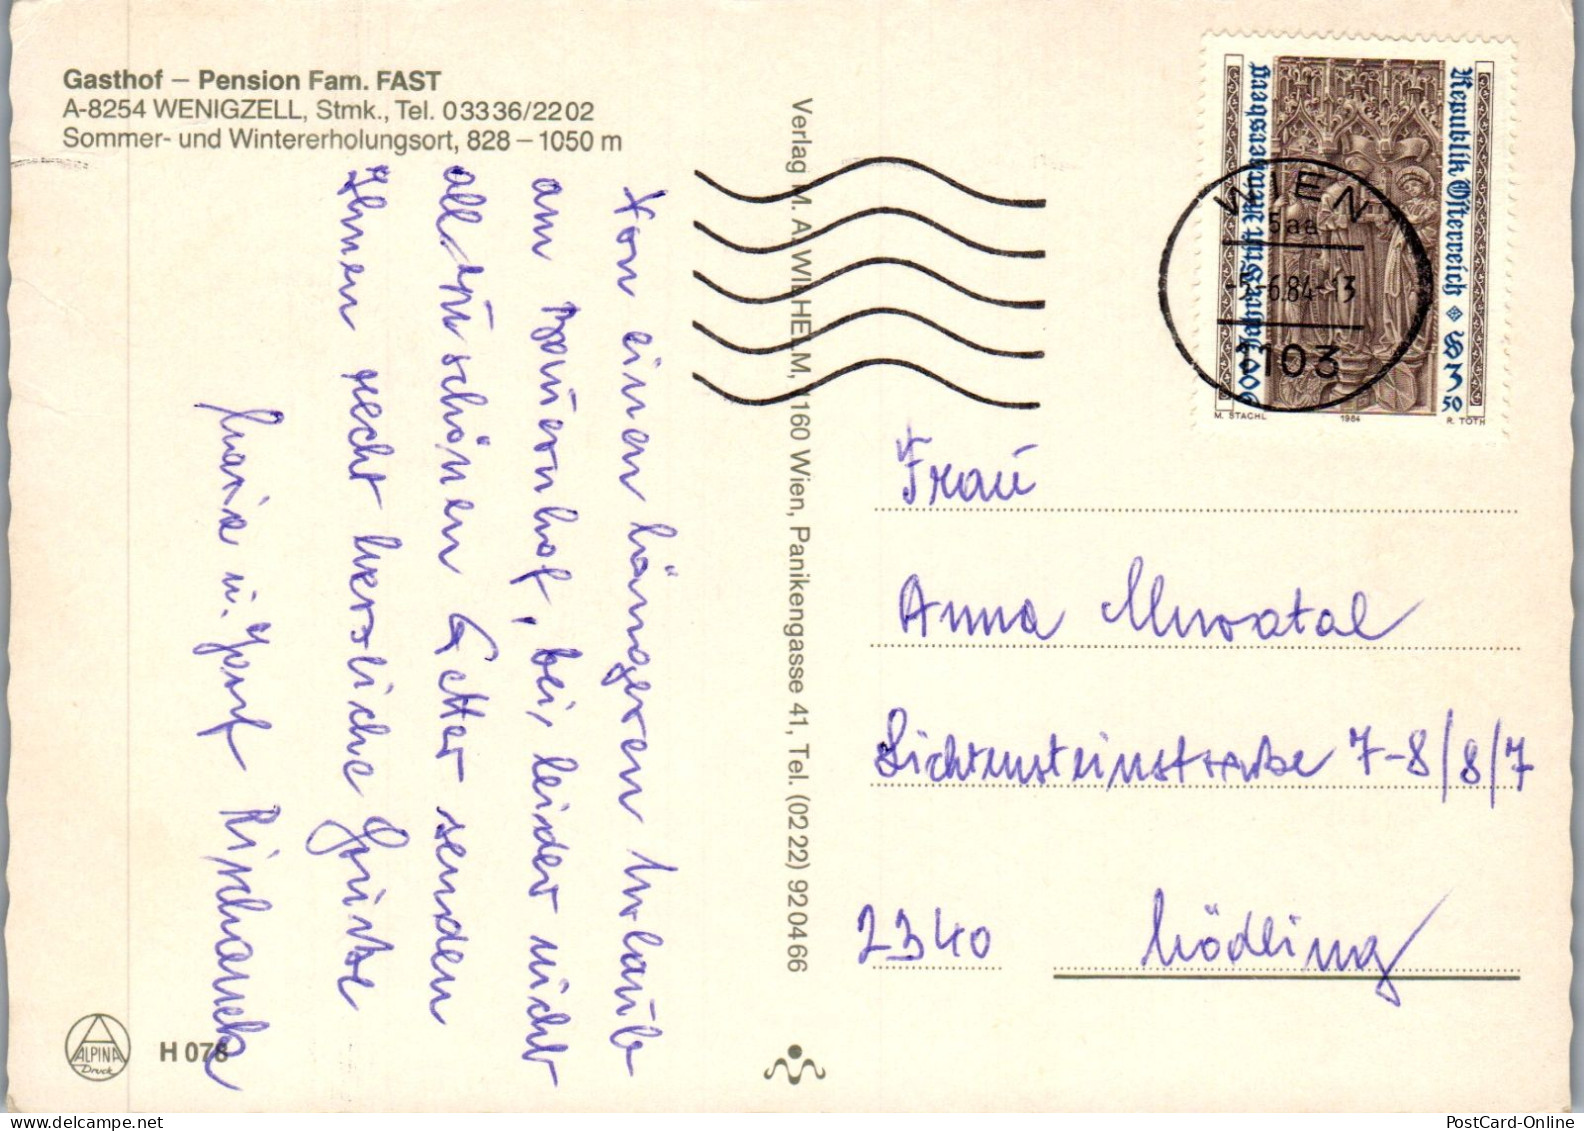 Gasthof – Pension Fam. FAST
A-8254 WENIGZELL, Stmk., Tel. 03336/2202
Sommer- und Wintererholungsort, 828 – 1050 m
Von einem längeren Urlaub
am Bauernhof, bei, leider nicht
allzu schönen Wetter senden
Ihnen recht herzliche Grüße
Maria u. Josef
Verlag M. A. WILHELM, 1160 Wien, Panikengasse 41, Tel. (0222) 920466
Republik Österreich S 3 50
M. STACHL 1984 R. TOTH
WIEN
5aa
6.84-13
1103
Frau
Anna
Lichtensteinstraße 7-8/8/7
2340 Mödling
ALPINA
Druck
H 078
PostCard-Online